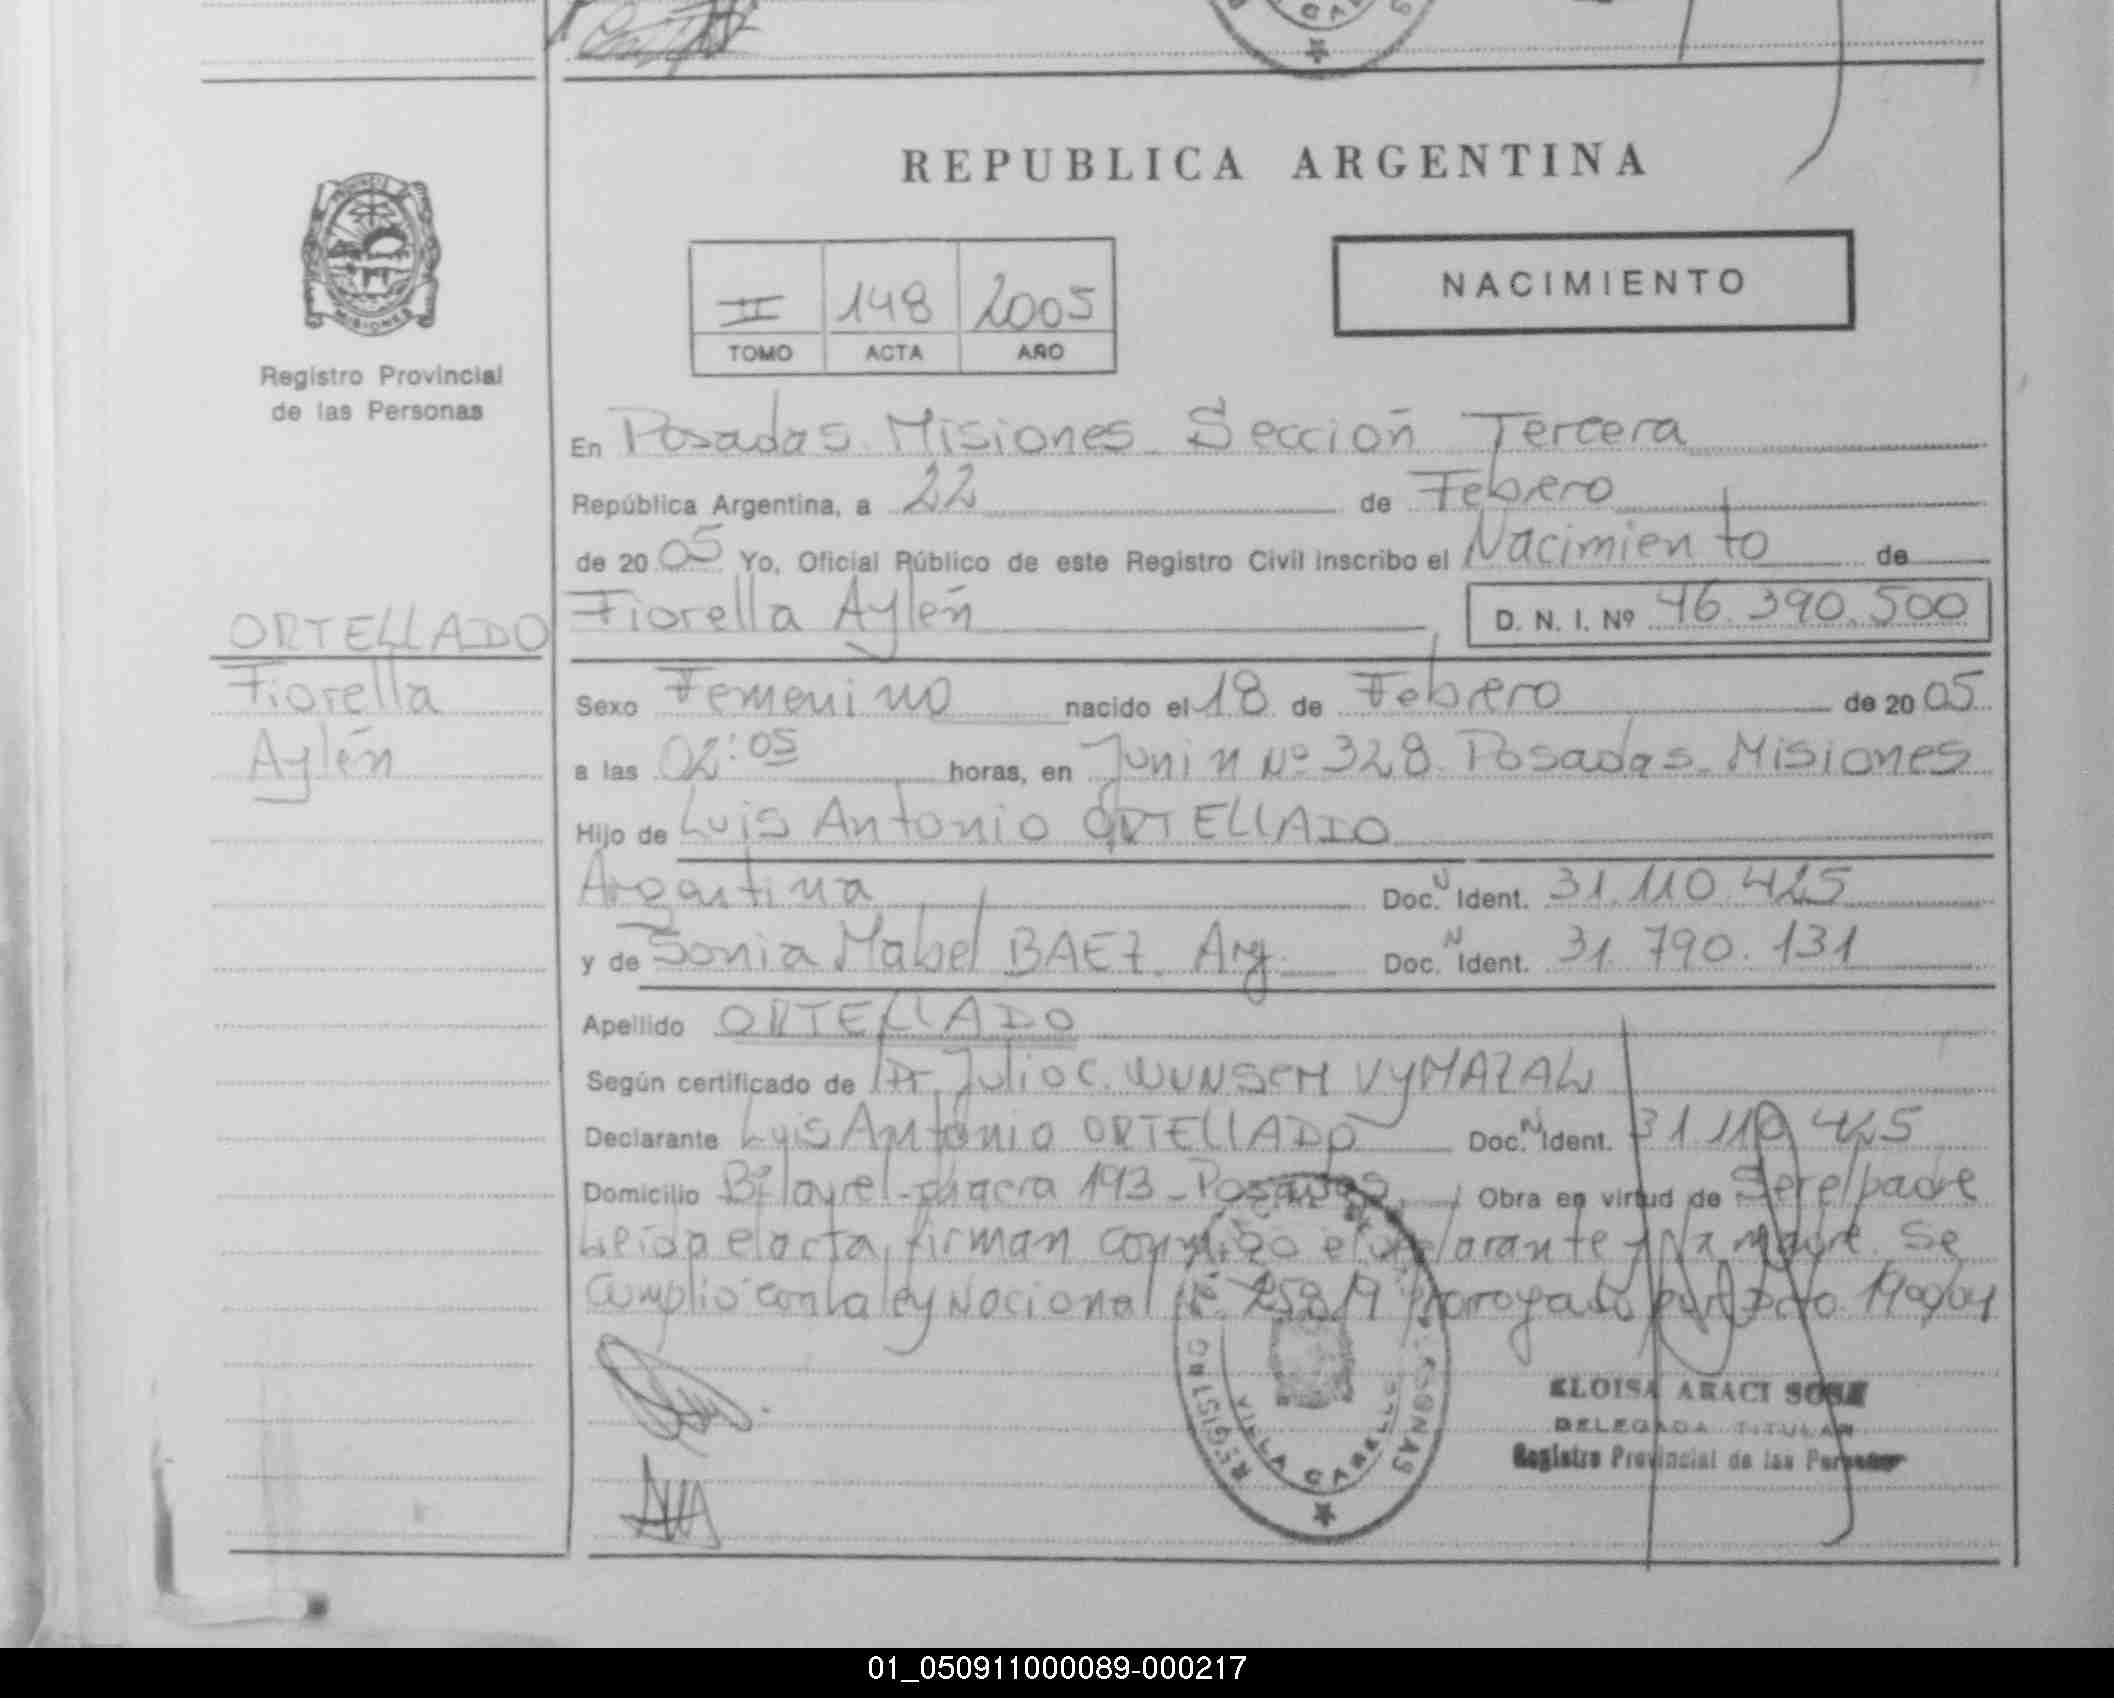 REPUBLICA ARGENTINA
MISIONES
Registro Provincial
de las Personas
NACIMIENTO
II 148 2005
TOMO ACTA AÑO
En Posadas. Misiones. Sección Tercera
República Argentina, a 22 de Febrero
de 20 05 Yo, Oficial Público de este Registro Civil inscribo el Nacimiento de
Fiorella Aylén D. N. I. Nº 46.390.500
ORTELLADO
Fiorella
Aylén
Sexo Femenino nacido el 18 de Febrero de 20 05
a las 02:05 horas, en Junin Nº 328. Posadas. Misiones
Hijo de Luis Antonio ORTELLADO
Argentina Doc. N Ident. 31.110.425
y de Sonia Mabel BAEZ. Arg. Doc. N Ident. 31.790.131
Apellido ORTELLADO
Según certificado de Dr. Julio C. WUNSCH VYMAZAL
Declarante Luis Antonio ORTELLADO Doc. N Ident. 31.110.425
Domicilio Bº laurel - chacra 193 - Posadas. Obra en virtud de Ser el padre
Leida el acta, firman conmigo el declarante y la madre. Se
Cumplió con la ley Nacional 25819 Prorrogado por Dcto. 1900/04
REGISTRO
VILLA CABELLO
ELOISA ARACI SOSA
DELEGADA TITULAR
Registro Provincial de las Personas
01_050911000089-000217